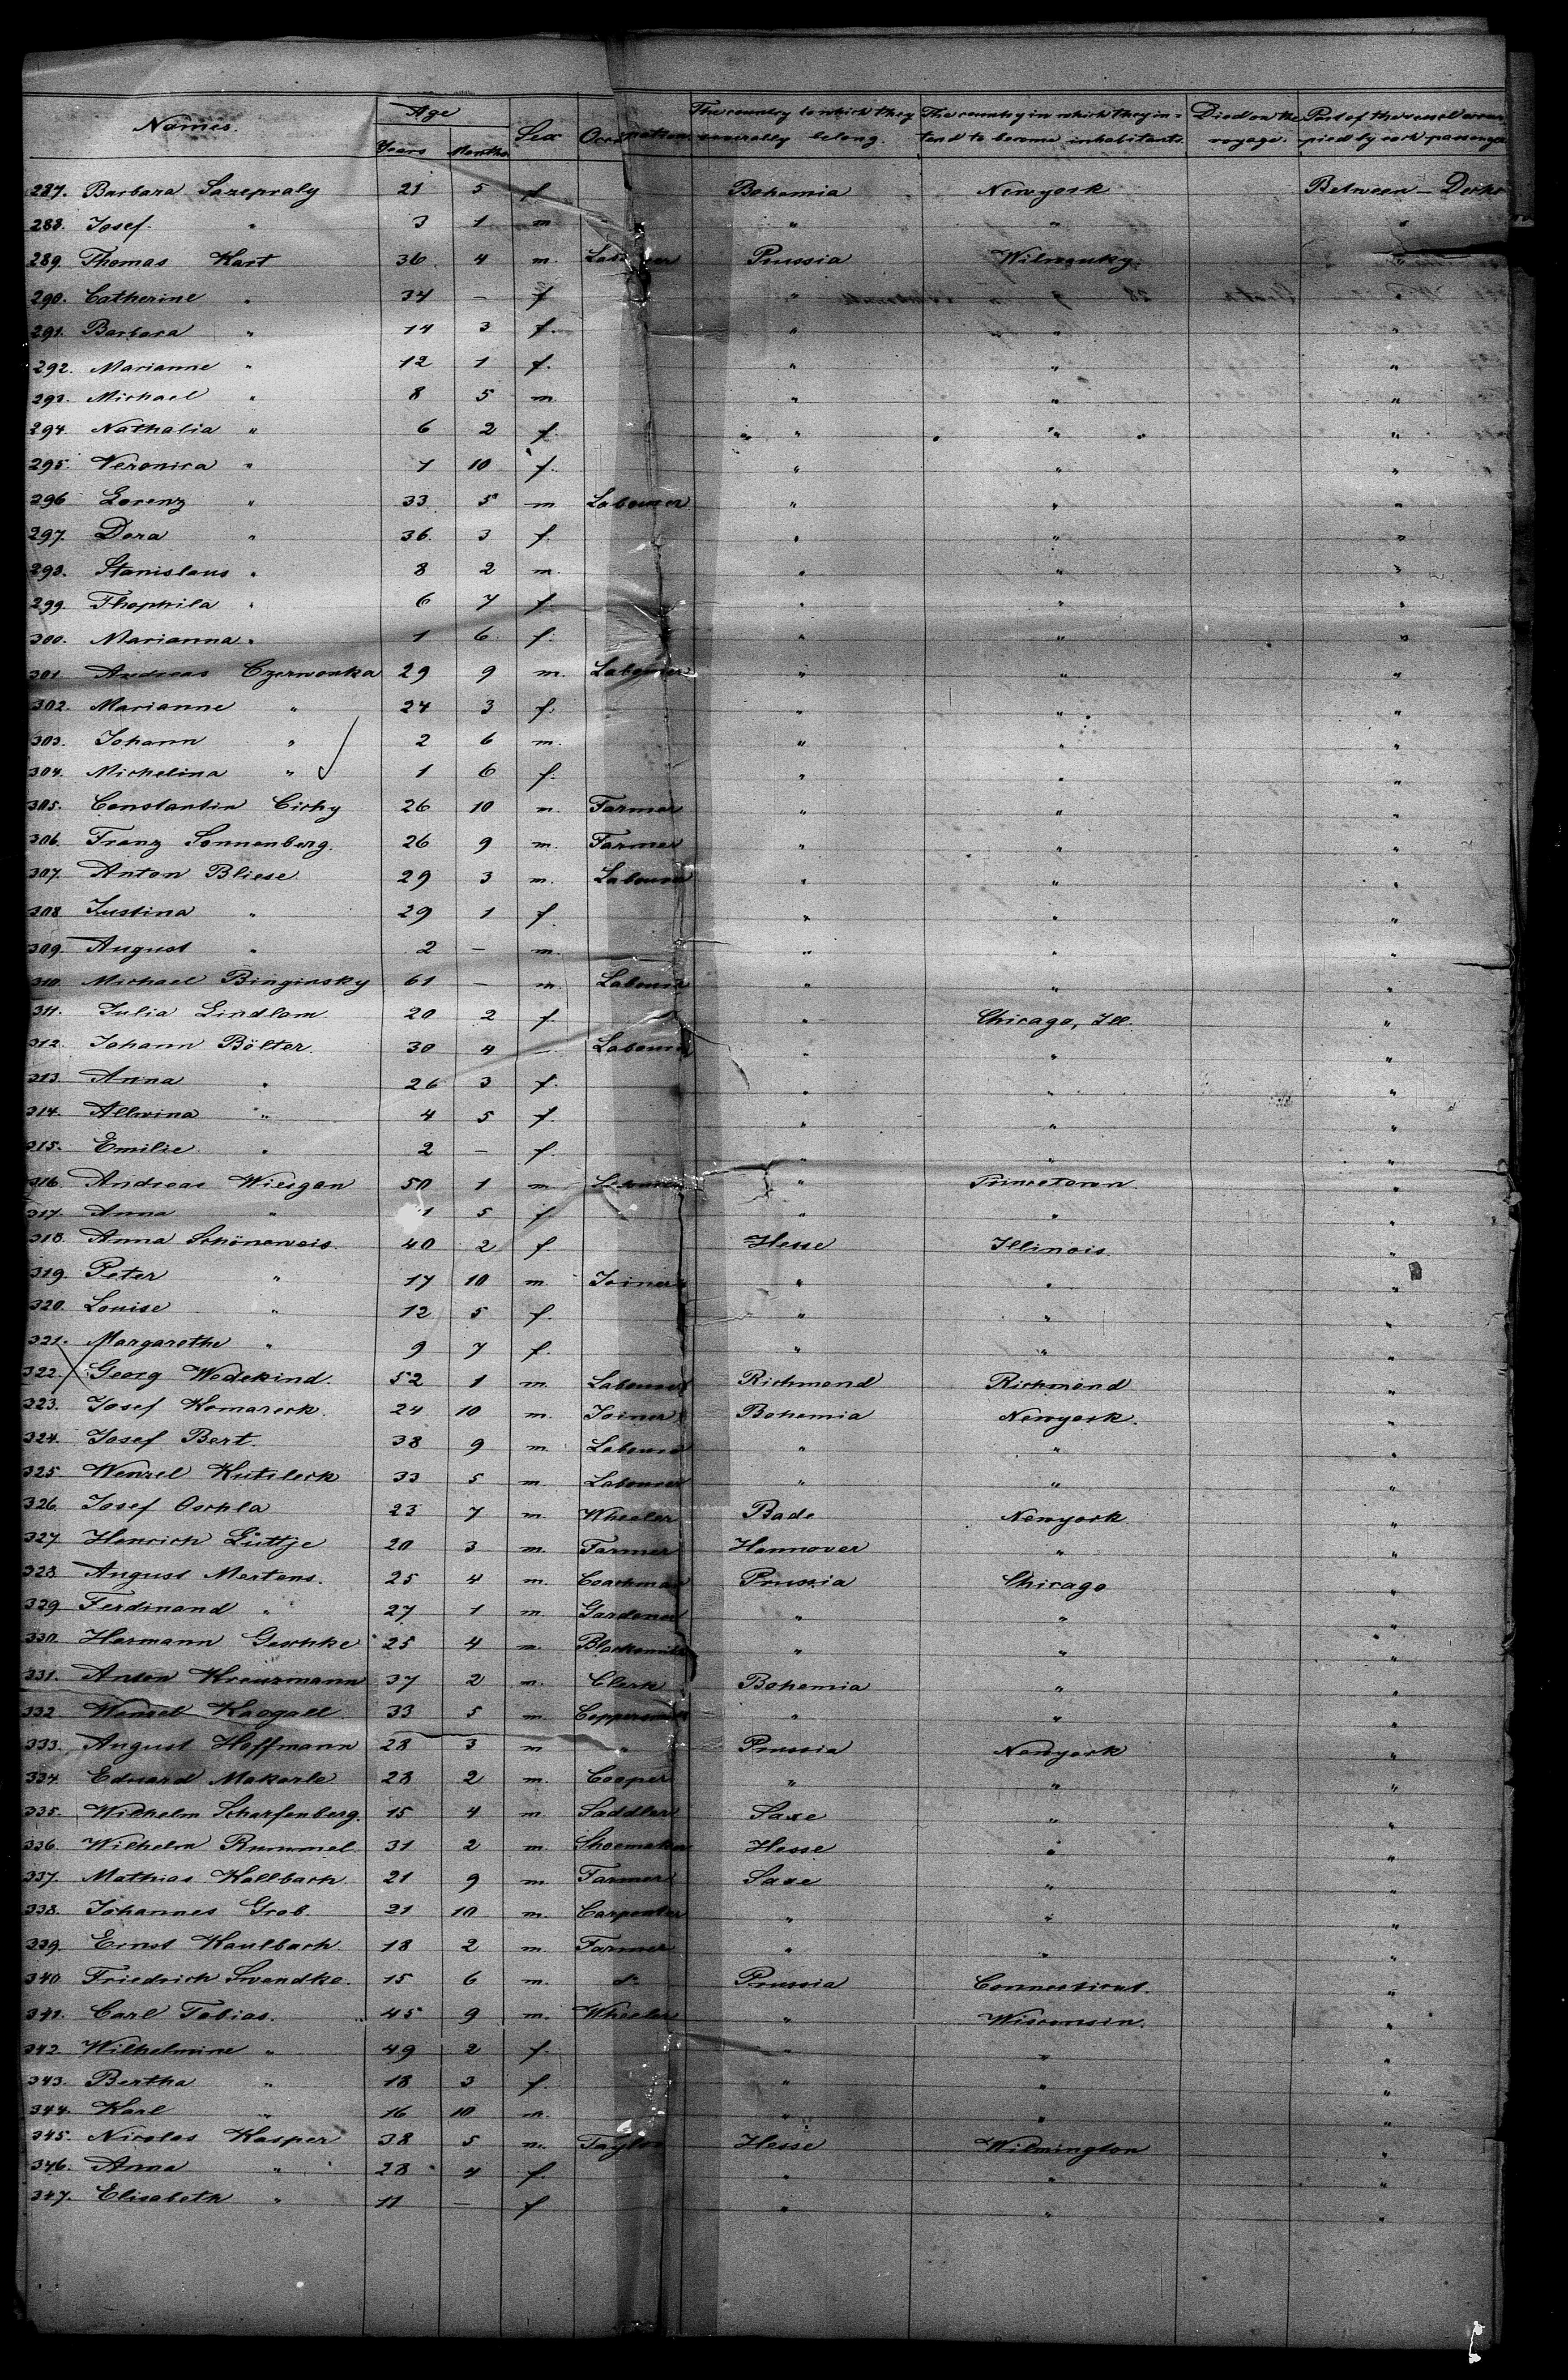 Names. Age Sex Occupation The country to which they The country in which they in- Died on the Part of the vessel occu-
Years Months severally belong. tend to become inhabitants. voyage. pied by each passenger
287. Barbara 21 5 f Bohemia Newyork Between - Decks
288. Josef " 3 1 m " " "
289. Thomas Kart 36 4 m. Labourer Prussia Wilwauky "
290. Catherine " 34 — f " " "
291. Barbara " 14 3 f. " " "
292. Marianne " 12 1 f. " " "
293. Michael " 8 5 m " " "
294. Nathalia " 6 2 f. " " "
295. Veronica " 1 10 f. " " "
296 Lorenz " 33 5 m Labourer " " "
297. Dora " 36. 3 f. " " "
298. Stanislaus " 8 2 m. " " "
299. Thophila " 6 7 f. " " "
300. Marianna " 1 6 f. " " "
301. Andreas Czerwonka 29 9 m. Labourer " " "
302. Marianne " 24 3 f. " " "
303. Johann " 2 6 m. " " "
304. Michelina " 1 6 f. " " "
305. Constantin Cichy 26 10 m. Farmer " " "
306. Franz Sonnenberg. 26 9 m. Farmer " " "
307. Anton Bliese 29 3 m. Labourer " " "
308 Justina " 29 1 f. " " "
309. August " 2 — m. " " "
310. Michael Binginsky 61 — m. Labourer " " "
311. Julia Lindlom 20 2 f. " Chicago, Ill. "
312. Johann Bölter. 30 4 — Labourer " " "
313. Anna " 26 3 f. " " "
314. Allwina " 4 5 f. " " "
315. Emilie " 2 — f. " " "
316. Andreas Wiesgan 50 1 m Labourer " Princetown "
317. Anna " 1 5 f. " " "
318. Anna Schöneweis 40 2 f. Hesse Illinois. "
319. Peter " 17 10 m. Joiner " " "
320. Louise " 12 5 f. " " "
321. Margarethe " 9 7 f. " " "
322. Georg Wedekind. 52 1 m. Labourer Richmond Richmond "
323. Josef Komareck. 24 10 m. Joiner Bohemia Newyork. "
324. Josef Bert. 38 9 m. Labourer " " "
325. Wenzel Kutileck 33 5 m Labourer " " "
326. Josef Oschla 23 7 m. Wheeler Bade Newyork "
327. Henrich Lüttje 20 3 m. Farmer Hannover " "
328. August Mertens. 25 4 m. Coachman Prussia Chicago "
329 Ferdinand " 27 1 m. Gardener " " "
330. Hermann Geschke 25 4 m. Blacksmith " " "
331. Anton Kreuzmann 37 2 m. Clerk Bohemia " "
332. Wenzel Kaogall 33 5 m Coppersmith " " "
333. August Hoffmann 28 3 m " Prussia Newyork "
334. Eduard Makarle 28 2 m. Cooper " " "
335. Wilhelm Scharfenberg. 15 4 m. Saddler Saxe " "
336. Wilhelm Rummel. 31 2 m. Shoemaker Hesse " "
337. Mathias Kallbach 21 9 m. Farmer Saxe " "
338. Johannes Grob. 21 10 m. Carpenter " " "
339. Ernst Kaulbach 18 2 m. Farmer " " "
340. Friedrich Swendke. 15 6 m. Prussia Connecticut. "
341. Carl Tobias. 45 9 m. Wheeler " Wisconsin. "
342. Wilhelmine " 49 2 f. " " "
343. Bertha " 18 3 f. " " "
344. Karl " 16 10 m. " " "
345. Nicolas Kasper 38 5 m. Taylor Hesse Wilmington "
346. Anna " 28 4 f. " " "
347. Elisabeth " 11 — f " " "